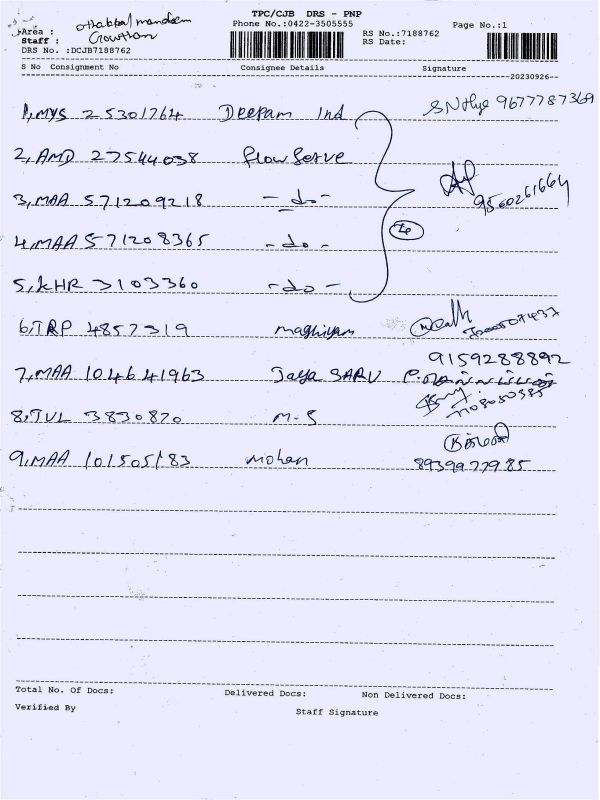 TPC/CJB DRS - PNP
Area : othakkal mandam
Phone No.:0422-3505555
Page No.:1
Staff : Gowtham
RS No.:7188762
DRS No. :DCJB7188762
RS Date:
S No Consignment No Consignee Details Signature
20230926
1, MYS 25301764 Deepam Ind 9677787369
2, AMD 27544038 flow Serve
3, MAA 571209218 - do - 9560261664
4, MAA 571208365 - do - 4
5, KHR 3103360 - do -
6, TRP 4857319 maghizam
9159288892
7, MAA 104641963 Jaya SARU
8, TVL 3830870 M-S
9, MAA 101505183 Mohan
8939977985
Total No. Of Docs: Delivered Docs: Non Delivered Docs:
Verified By
Staff Signature